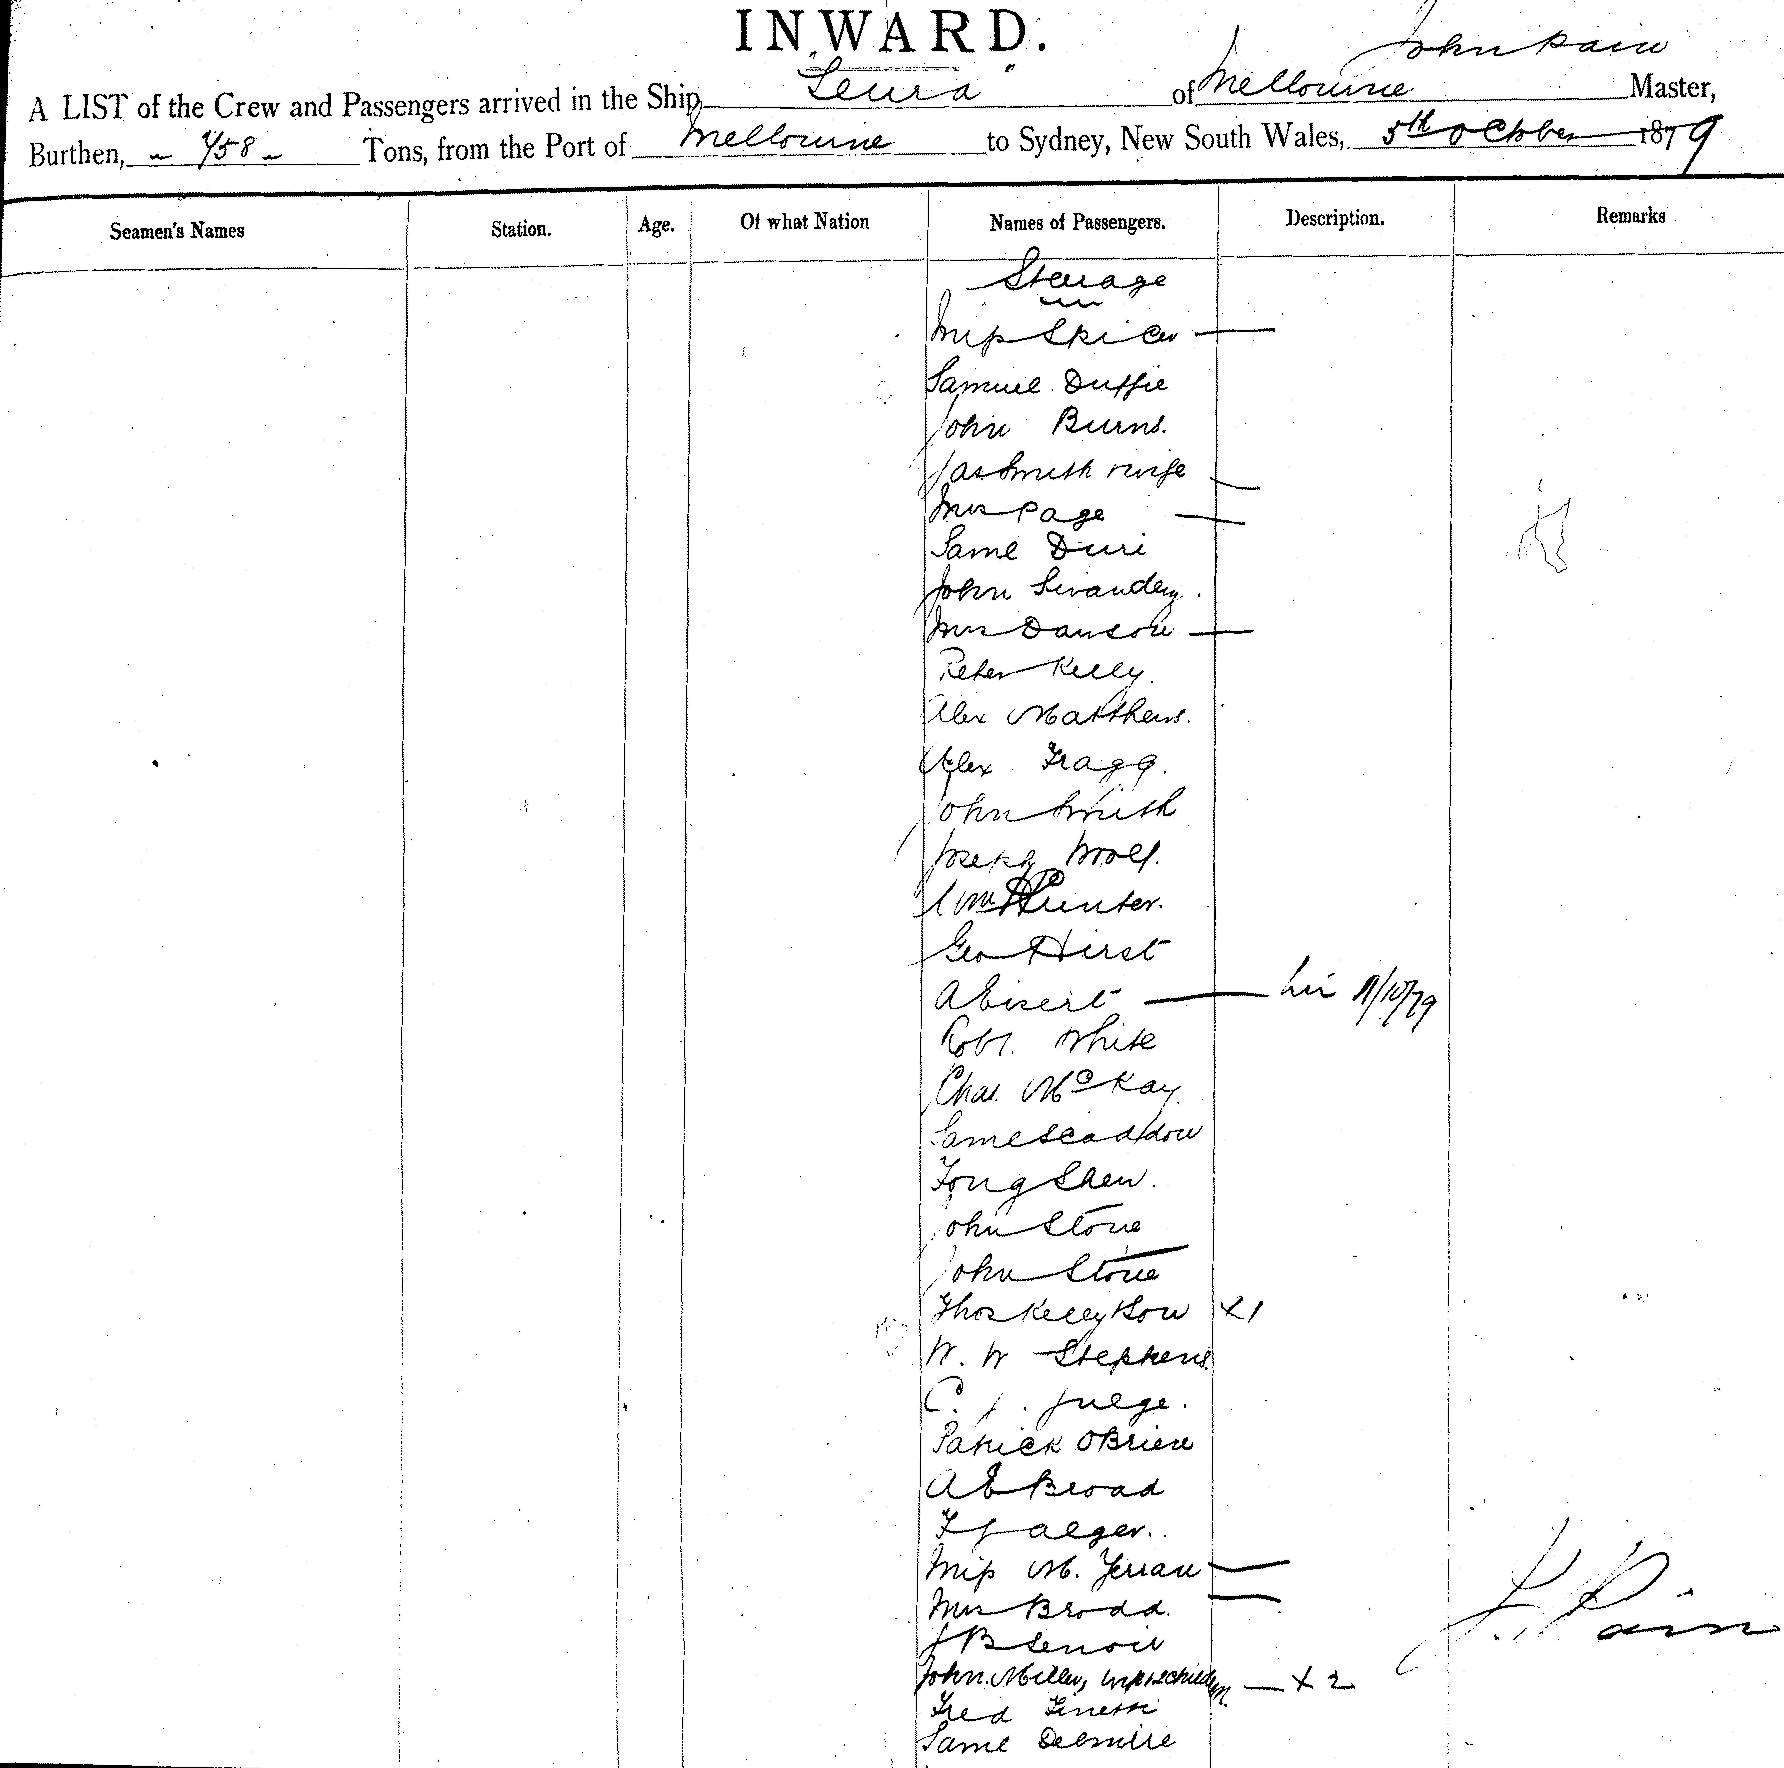 INWARD.
John Pain
A LIST of the Crew and Passengers arrived in the Ship, "Leura" of Melbourne Master,
Burthen, 458 Tons, from the Port of Melbourne to Sydney, New South Wales, 5th October 1879
Seamen's Names Station. Age. Of what Nation Names of Passengers. Description. Remarks
Steerage
Miss Spicer
Samuel Duffie
John Burns.
Jas Smith & wife
Mrs Page
Saml
John
Mrs Dawson
Peter Kelly.
Alex Matthews.
Alex Fragg.
John Smith
Joseph Woolf.
Wm Hunter.
Geo Hirst
A
Robt. White
Chas. McKay
Saml Scaddon
Fong Shew.
John Stone
John Stone
Thos Kelly & Son X1
W. W Stephens
C. J. Julge.
Patrick OBrien
A E Broad
F Jaeger.
Miss M.
Mrs Brodd.
J B Lenoir
John Miller, wife & 2 children X 2
Fred
Saml
J. Pain